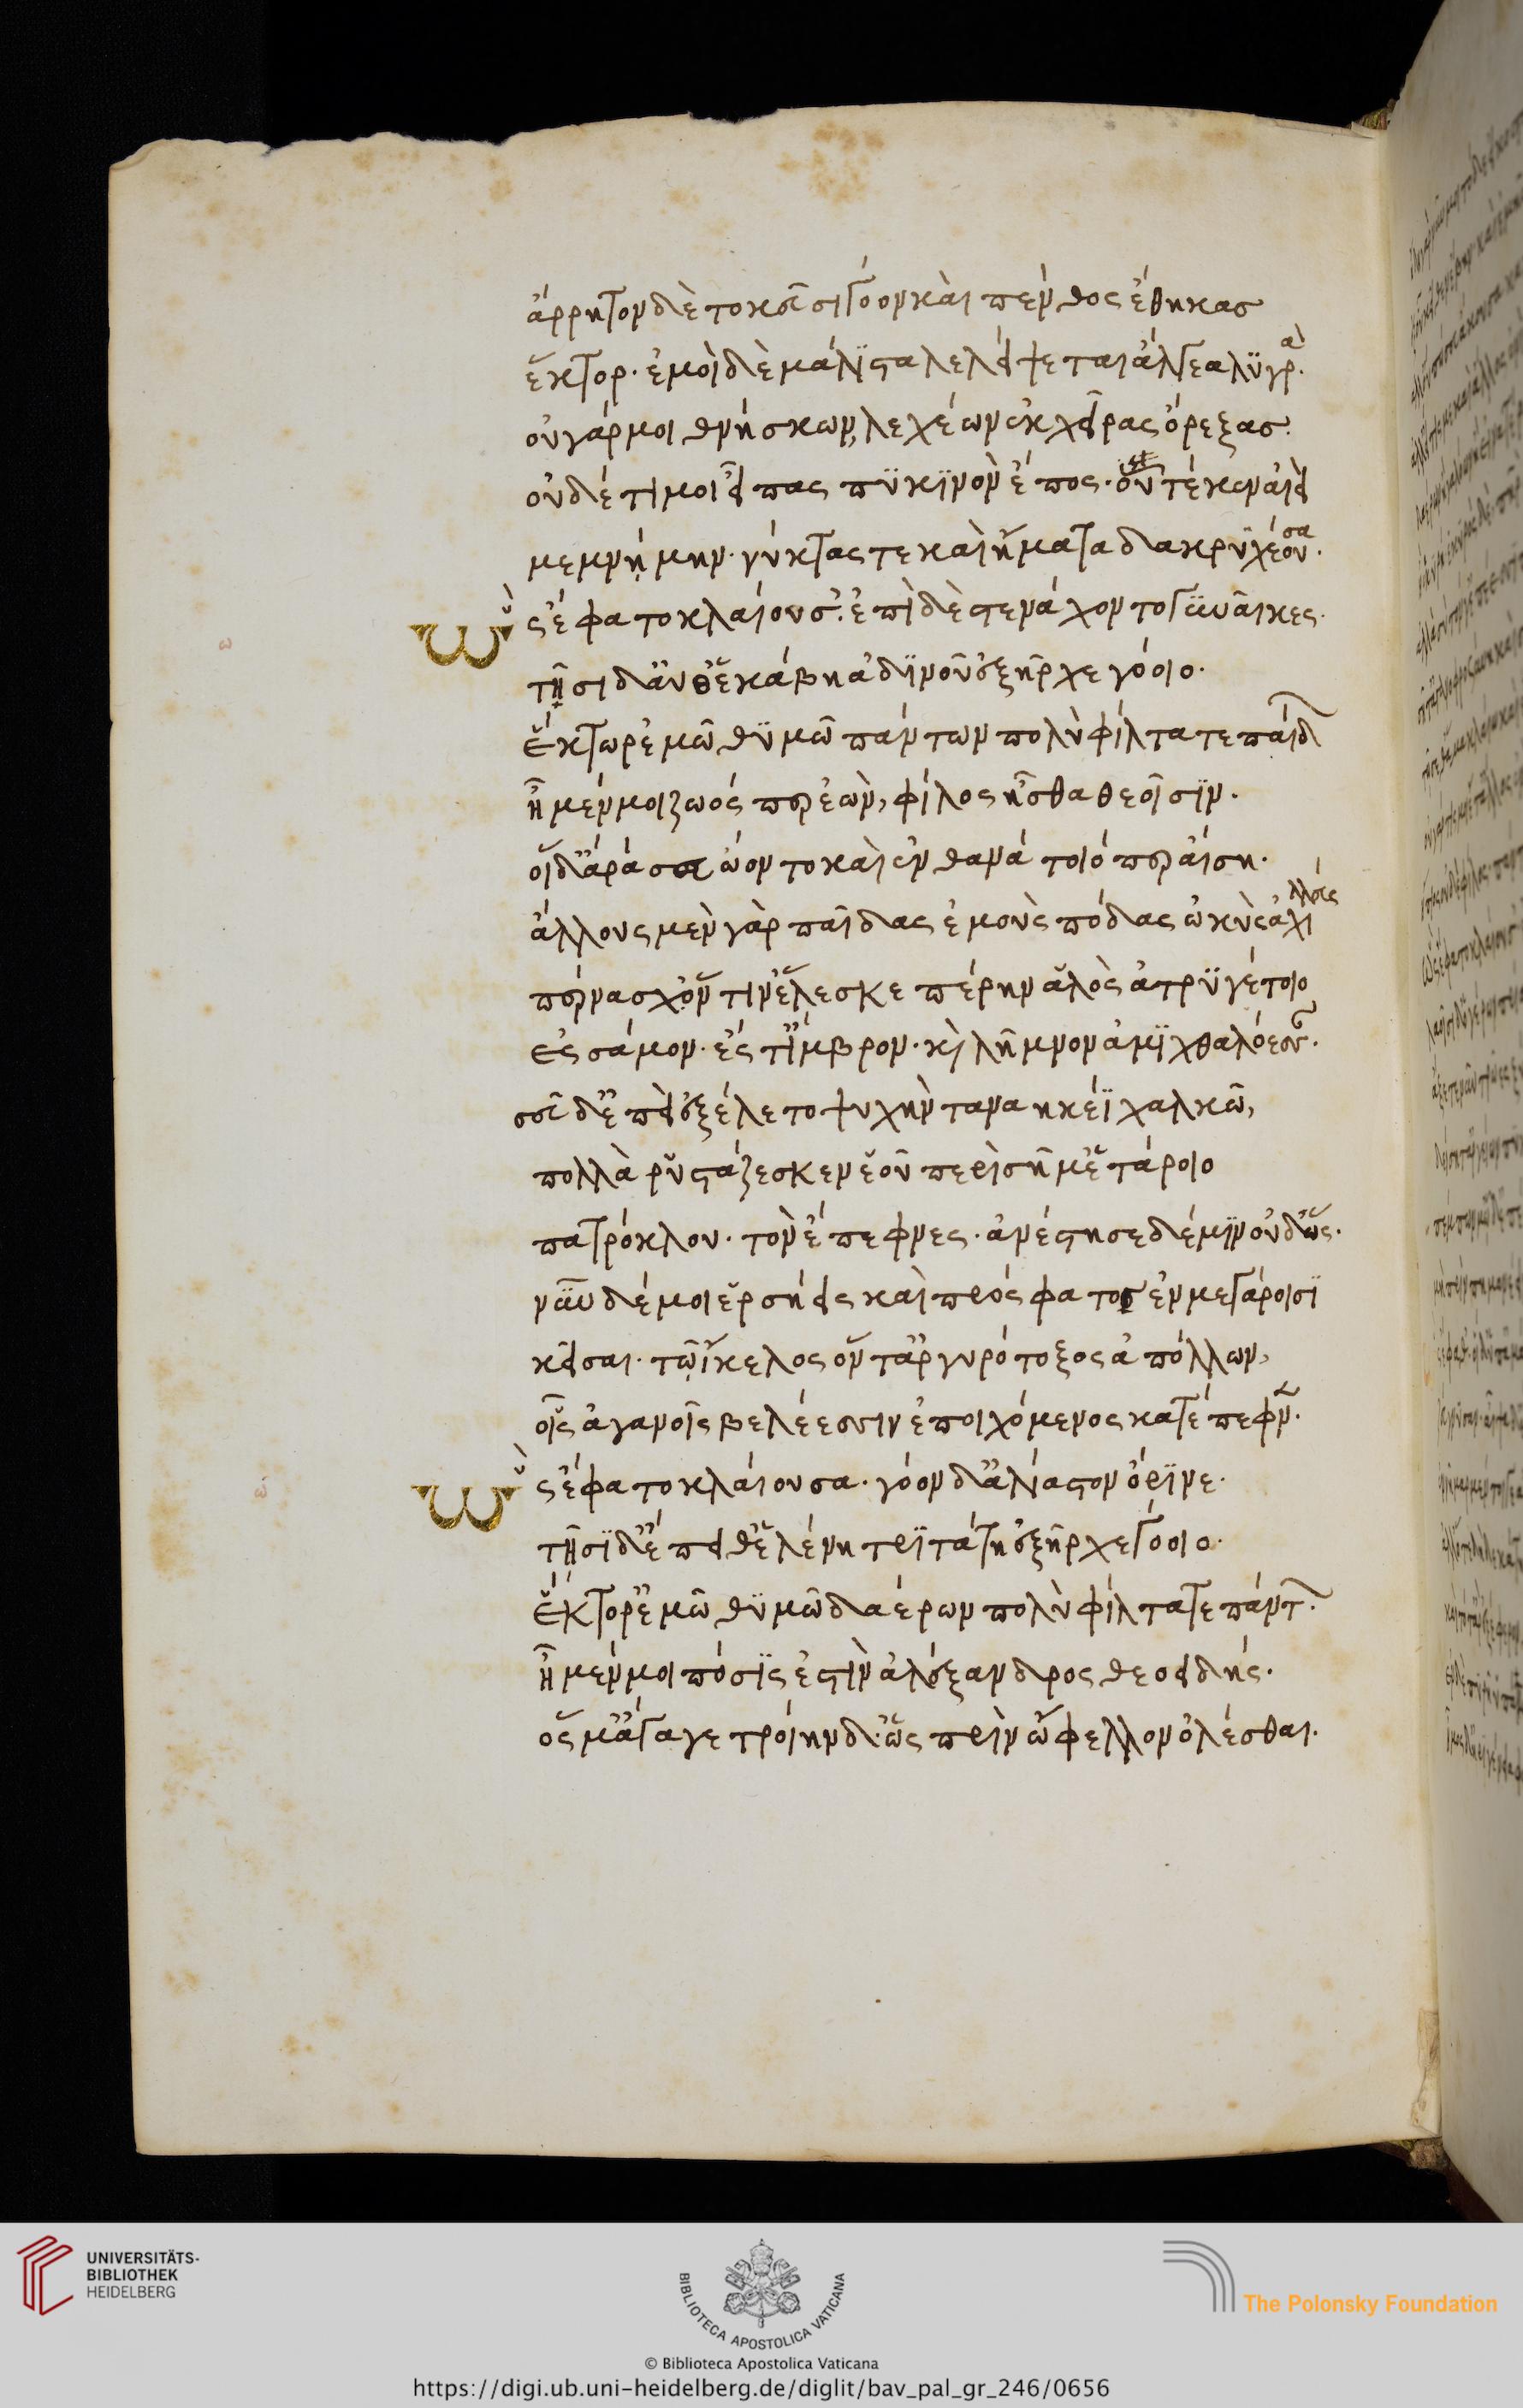 ἄρρητον δὲ τοκεῦσι γόον καὶ πένθος ἔθηκασ
ἕκτορ· ἐμοὶ δὲ μάλιστα λελείψεται ἄλγεα λυγρά·
οὐ γάρ μοι θνήσκων, λεχέων ἐκ χεῖρας ὄρεξας·
οὐδέ τί μοι εἶπας πυκινὸν ἔπος· οὗ τέ κεν αἰεὶ
μεμνήμην· νύκτας τε καὶ ἤματα δακρυχέουσα·
Ὣς ἔφατο κλαίουσ'· ἐπὶ δὲ στενάχοντο γυναῖκες·
τῇσι δ' αὖθ' ἑκάβη ἀδινοῦ ἐξῆρχε γόοιο·
ἕκτωρ ἐμῶ θυμῶ πάντων πολὺ φίλτατε παίδ
ἦ μέν μοι ζωός περ ἐὼν, φίλος ἦσθα θεοῖσιν·
οἱ δ' ἄρα σεῦ κήδοντο καὶ ἐν θανάτοιό περ αἴση·
ἄλλους μὲν γὰρ παῖδας ἐμοὺς πόδας ὠκὺς ἀχιλλεὺς
πέρνασχ' ὅν τιν' ἕλεσκε πέρην ἁλὸς ἀτρυγέτοιο
ἐς σάμον· ἔς τ' ἴμβρον· κὶ λῆμνον ἀμιχθαλόεσσαν·
σεῦ δ' ἐπεὶ ἐξέλετο ψυχὴν ταναηκέϊ χαλκῶ,
πολλὰ ῥυστάζεσκεν ἑοῦ περὶ σῆμ' ἑτάροιο
πατρόκλου· τὸν ἔπεφνες· ἀνέστησε δέ μιν οὐδ' ὥς·
νῦν δέ μοι ἑρσήεις καὶ πρόσφατος ἐν μεγάροισι
κεῖσαι· τῷ ἴκελος ὅν τ' ἀργυρότοξος ἀπόλλων,
οἷς ἀγανοῖς βελέεσσιν ἐποιχόμενος κατέπεφν·
Ὣς ἔφατο κλαίουσα· γόον δ' ἀλίαστον ὄρινε·
τῇσι δ' ἔπειθ' ἑλένη τριτάτη ἐξῆρχε γόοιο·
ἕκτορ ἐμῶ θυμῶ δαέρων πολὺ φίλτατε πάντ·
ἦ μέν μοι πόσις ἐστὶν ἀλέξανδρος θεοειδής·
ὅς μ' ἄγαγε τροίηνδ'· ὣς πρὶν ὤφελλον ὀλέσθαι·
UNIVERSITÄTS-
BIBLIOTHEK
HEIDELBERG
BIBLIOTECA APOSTOLICA VATICANA
The Polonsky Foundation
© Biblioteca Apostolica Vaticana
https://digi.ub.uni-heidelberg.de/diglit/bav_pal_gr_246/0656